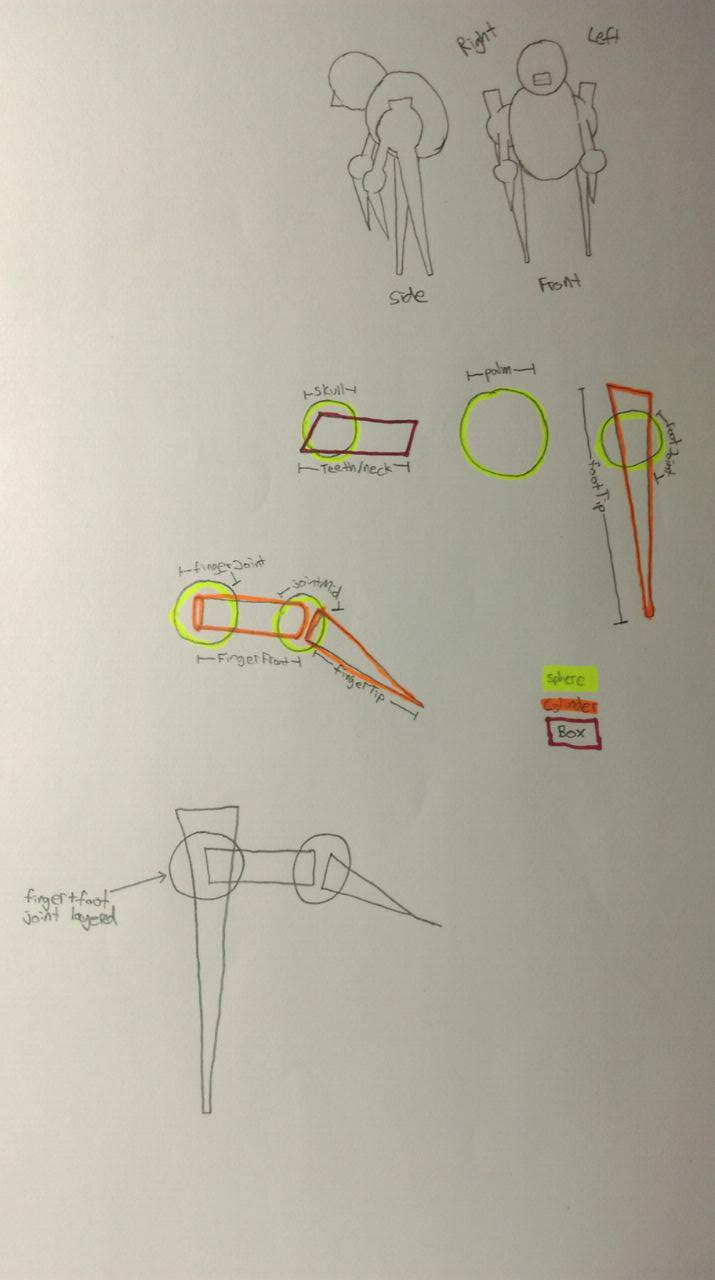 Right
Left
Side
Front
skull
palm
Teeth/neck
footJoint
footTip
fingerJoint
jointMid
FingerFront
fingerTip
sphere
cylinder
Box
finger+foot
joint layered